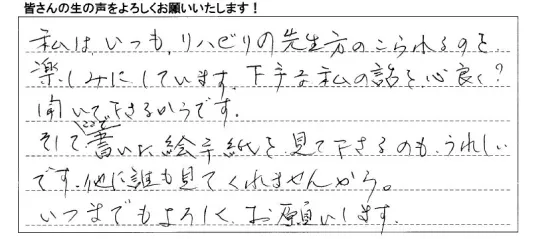 皆さんの生の声をよろしくお願いいたします！
私は、いつも、リハビリの先生方のこられるのを
楽しみにしています。下手な私の話を、心良く？
聞いて下さるからです。
そして、ここで書いた絵手紙を、見て下さるのも、うれしい
です。他に誰も見てくれませんから。
いつまでもよろしく、お願いします。